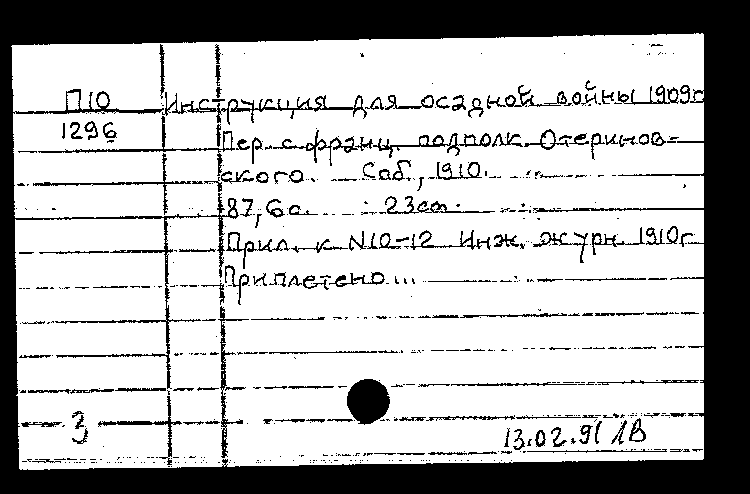 П10 Инструкция для осадной войны 1909г
1296 Пер. с франц. подполк. Отеринов-
ского. Спб, 1910.
87,6с. 23см.
Прил. к N10-12 Инж. журн. 1910г
Приплетено...
3
13.02.91 ЛВ